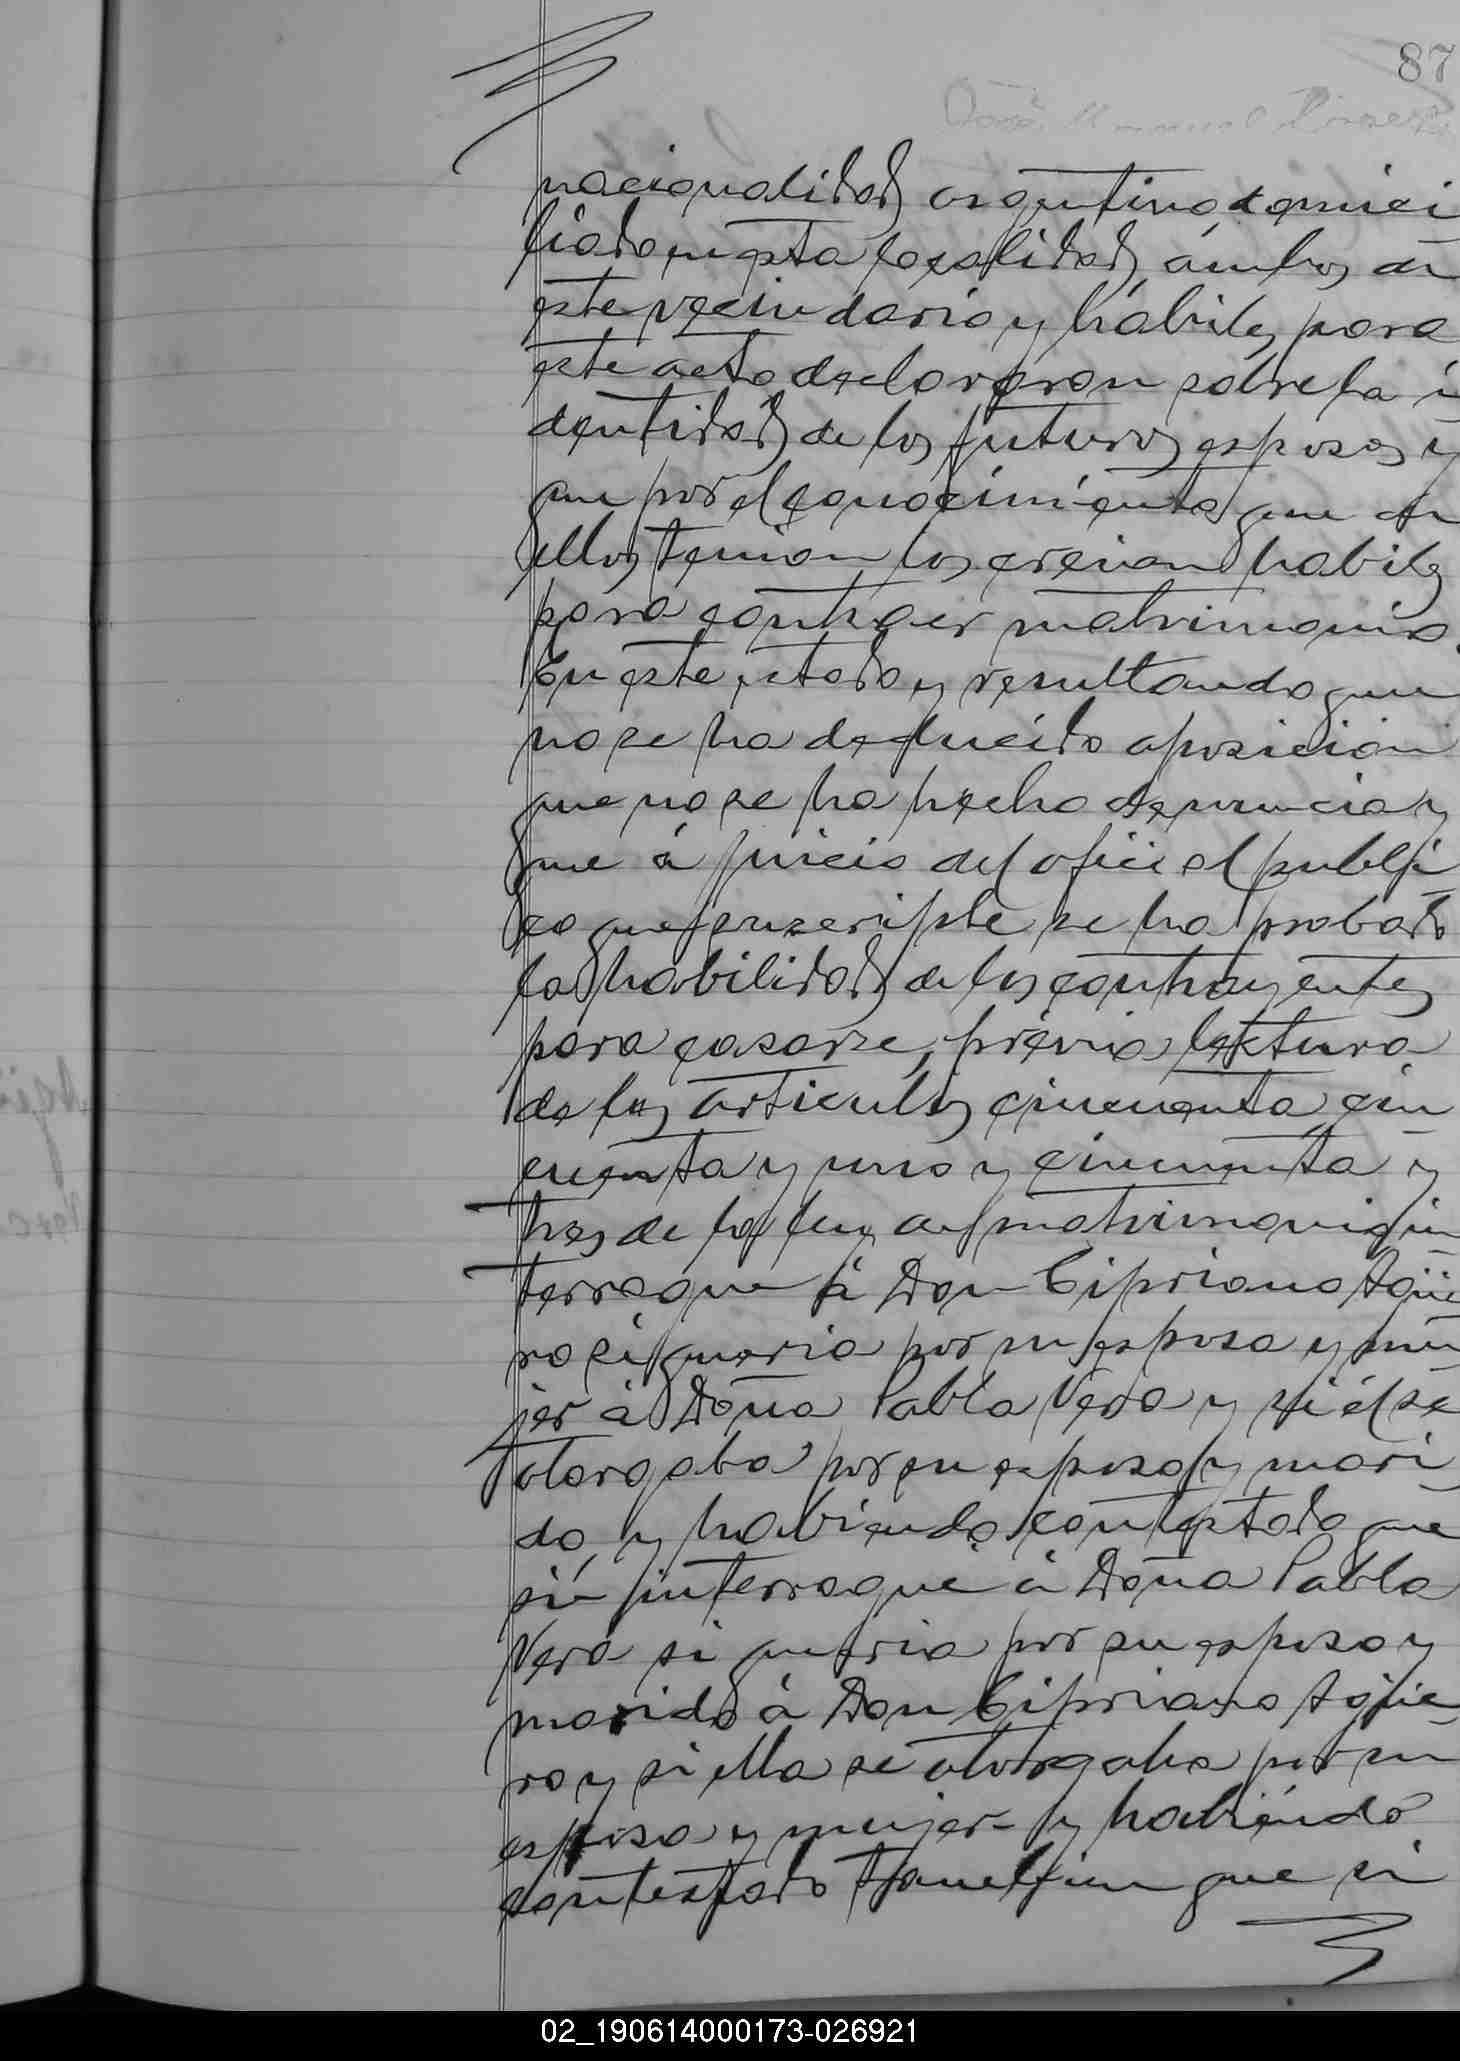 87
nacionalidad argentino domici
liado en esta localidad, ámbos de
este vecindario y hábiles para
este acto declararon sobre la i
dentidad de los futuros esposos y
que por el conocimiento que de
ellos tenian los creian habiles
para contraer matrimonio.
En este estado y resultando que
no se ha deducido oposicion
que no se ha hecho denuncia y
que á juicio del oficial públi
co que suscripbe se ha probado
la habilidad de los contrayentes
para casarse, prévia lectura
de los articulos cincuenta, cin
cuenta y uno y cincuenta y
tres de la ley de matrimonio, in
terrogue á Don Cipriano Agüe
ro si queria por su esposa y mu
jer á Doña Pabla Vera y si él se
otorgaba por su esposo y mari
do, y habiendo contestado que
si interrogué á Doña Pabla
Vera si queria por su esposo y
marido á Don Cipriano Agüe
ro y si ella se otorgaba por su
esposa y mujer y habiendo
contestado tambien que si
02_190614000173-026921